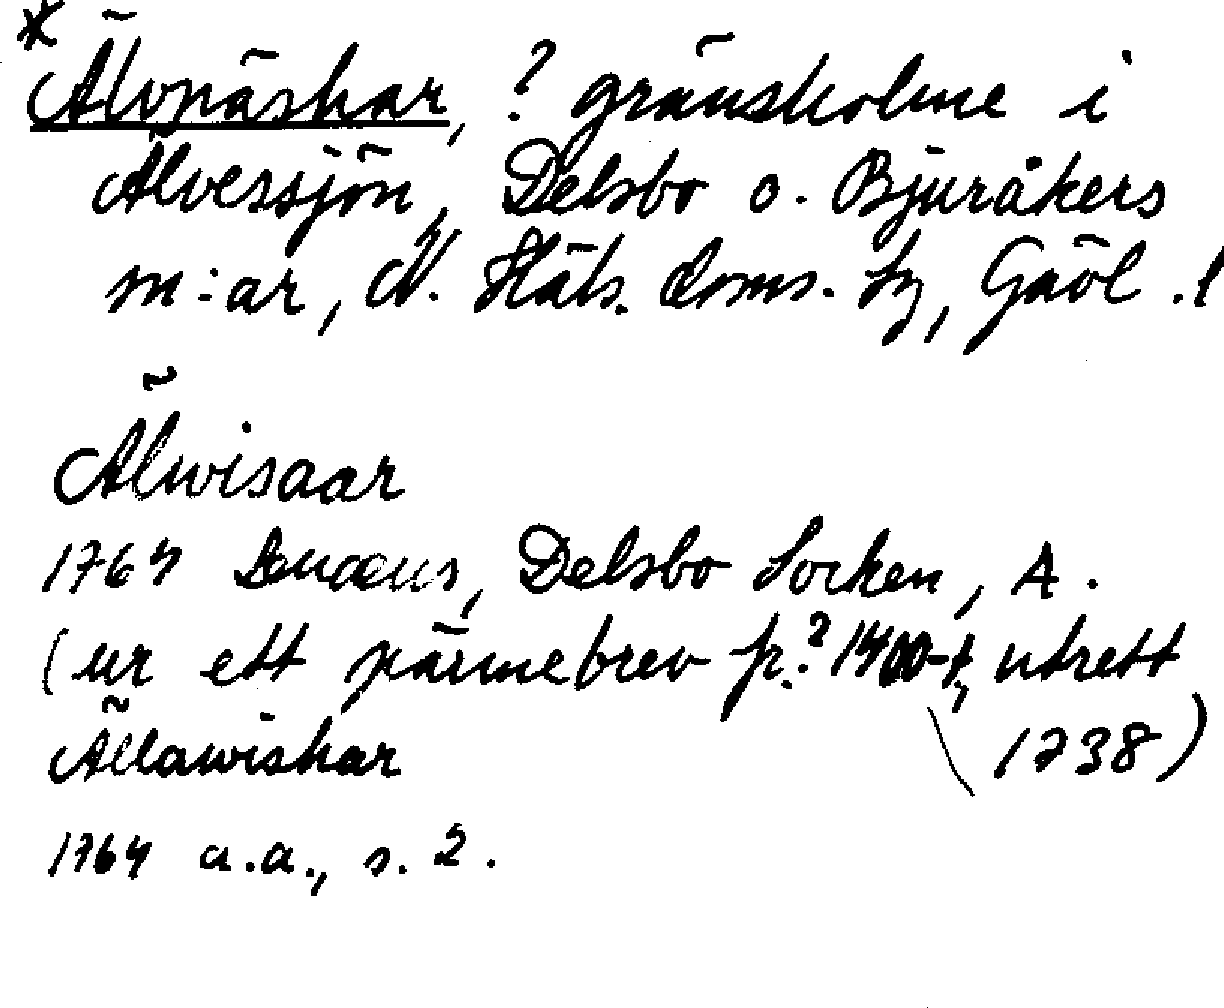 *
Älvnäskar, ? gränsholme i
Älvessjön, Delsbo o. Bjuråkers
sn:ar, N. Häls. doms. hg, Gävl. l
Älwisaar
1764 Lenæus, Delsbo Socken, A.
(ur ett pärmebrev fr.? 1400-t, utrett
1738)
Ällawiskar
1764 a.a., s. 2.